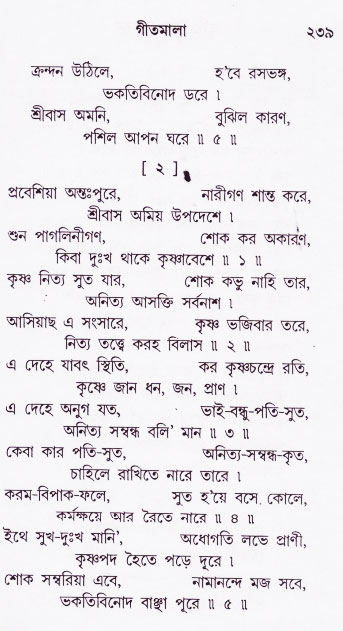 গীতমালা ২৩৯
ক্রন্দন উঠিলে, হ'বে রসভঙ্গ,
ভকতিবিনোদ ডরে ।
শ্রীবাস অমনি, বুঝিল কারণ,
পশিল আপন ঘরে ॥ ৫ ॥
[ ২ ]
প্রবেশিয়া অন্তঃপুরে, নারীগণ শান্ত করে,
শ্রীবাস অমিয় উপদেশে ।
শুন পাগলিনীগণ, শোক কর অকারণ,
কিবা দুঃখ থাকে কৃষ্ণাবেশে ॥ ১ ॥
কৃষ্ণ নিত্য সুত যার, শোক কভু নাহি তার,
অনিত্য আসক্তি সর্বনাশ ।
আসিয়াছ এ সংসারে, কৃষ্ণ ভজিবার তরে,
নিত্য তত্ত্বে করহ বিলাস ॥ ২ ॥
এ দেহে যাবৎ স্থিতি, কর কৃষ্ণচন্দ্রে রতি,
কৃষ্ণে জান ধন, জন, প্রাণ ।
এ দেহে অনুগ যত, ভাই-বন্ধু-পতি-সুত,
অনিত্য সম্বন্ধ বলি' মান ॥ ৩ ॥
কেবা কার পতি-সুত, অনিত্য-সম্বন্ধ-কৃত,
চাহিলে রাখিতে নারে তারে ।
করম-বিপাক-ফলে, সুত হ'য়ে বসে কোলে,
কর্মক্ষয়ে আর রৈতে নারে ॥ ৪ ॥
ইথে সুখ-দুঃখ মানি', অধোগতি লভে প্রাণী,
কৃষ্ণপদ হৈতে পড়ে দূরে ।
শোক সম্বরিয়া এবে, নামানন্দে মজ সবে,
ভকতিবিনোদ বাঞ্ছা পূরে ॥ ৫ ॥